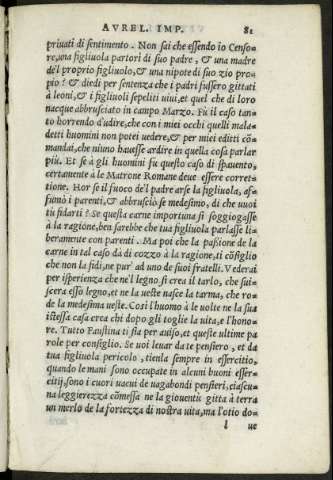 AVREL. IMP. 81
priuati di sentimento. Non sai che essendo io Censo=
re, una figliuola partori di suo padre, & una madre
de'l proprio figliuolo, & una nipote di suo zio pro=
pio? & diedi per sentenza che i padri fussero gittati
à leoni, & i figliuoli sepeliti uiui, et quel che di loro
nacque abbrusciato in campo Marzo. Fù il caso tan=
to horrendo d'udire, che con i miei occhi quelli mala=
detti huomini non potei uedere, & per miei editti cõ=
mandai, che niuno hauesse ardire in quella cosa parlar
più. Et se à gli huomini fu questo caso di spauento,
certamente à le Matrone Romane deue essere corret=
tione. Hor se il fuoco de'l padre arse la figliuola, af=
fumò i parenti, & abbrusciò se medesimo, di che uuoi
tù fidarti? Se questa carne importuna si soggiogasse
à la ragione, ben sarebbe che tua figliuola parlasse li=
beramente con parenti. Ma poi che la passione de la
carne in tal caso dà di cozzo à la ragione, ti cõsiglio
che non la fidi, ne pur' ad uno de suoi fratelli. Vederai
per isperienza che ne'l legno si crea il tarlo, che sui=
scera esso legno, et ne la ueste nasce la tarma, che ro=
de la medesima ueste. Così l'huomo à le uolte ne la sua
istessa casa crea chi dopo gli toglie la uita, e l'hono=
re. Tutto Faustina ti sia per auiso, et queste ultime pa
role per consiglio. Se uoi leuar da te pensiero, et da
tua figliuola pericolo, tienla sempre in essercitio,
quando le mani sono occupate in alcuni buoni esser=
citij, sono i cuori uacui de uagabondi pensieri, ciascu=
na leggierezza cõmessa ne la giouentù gitta à terra
un merlo de la fortezza di nostra uita, ma l'otio do=
l ue